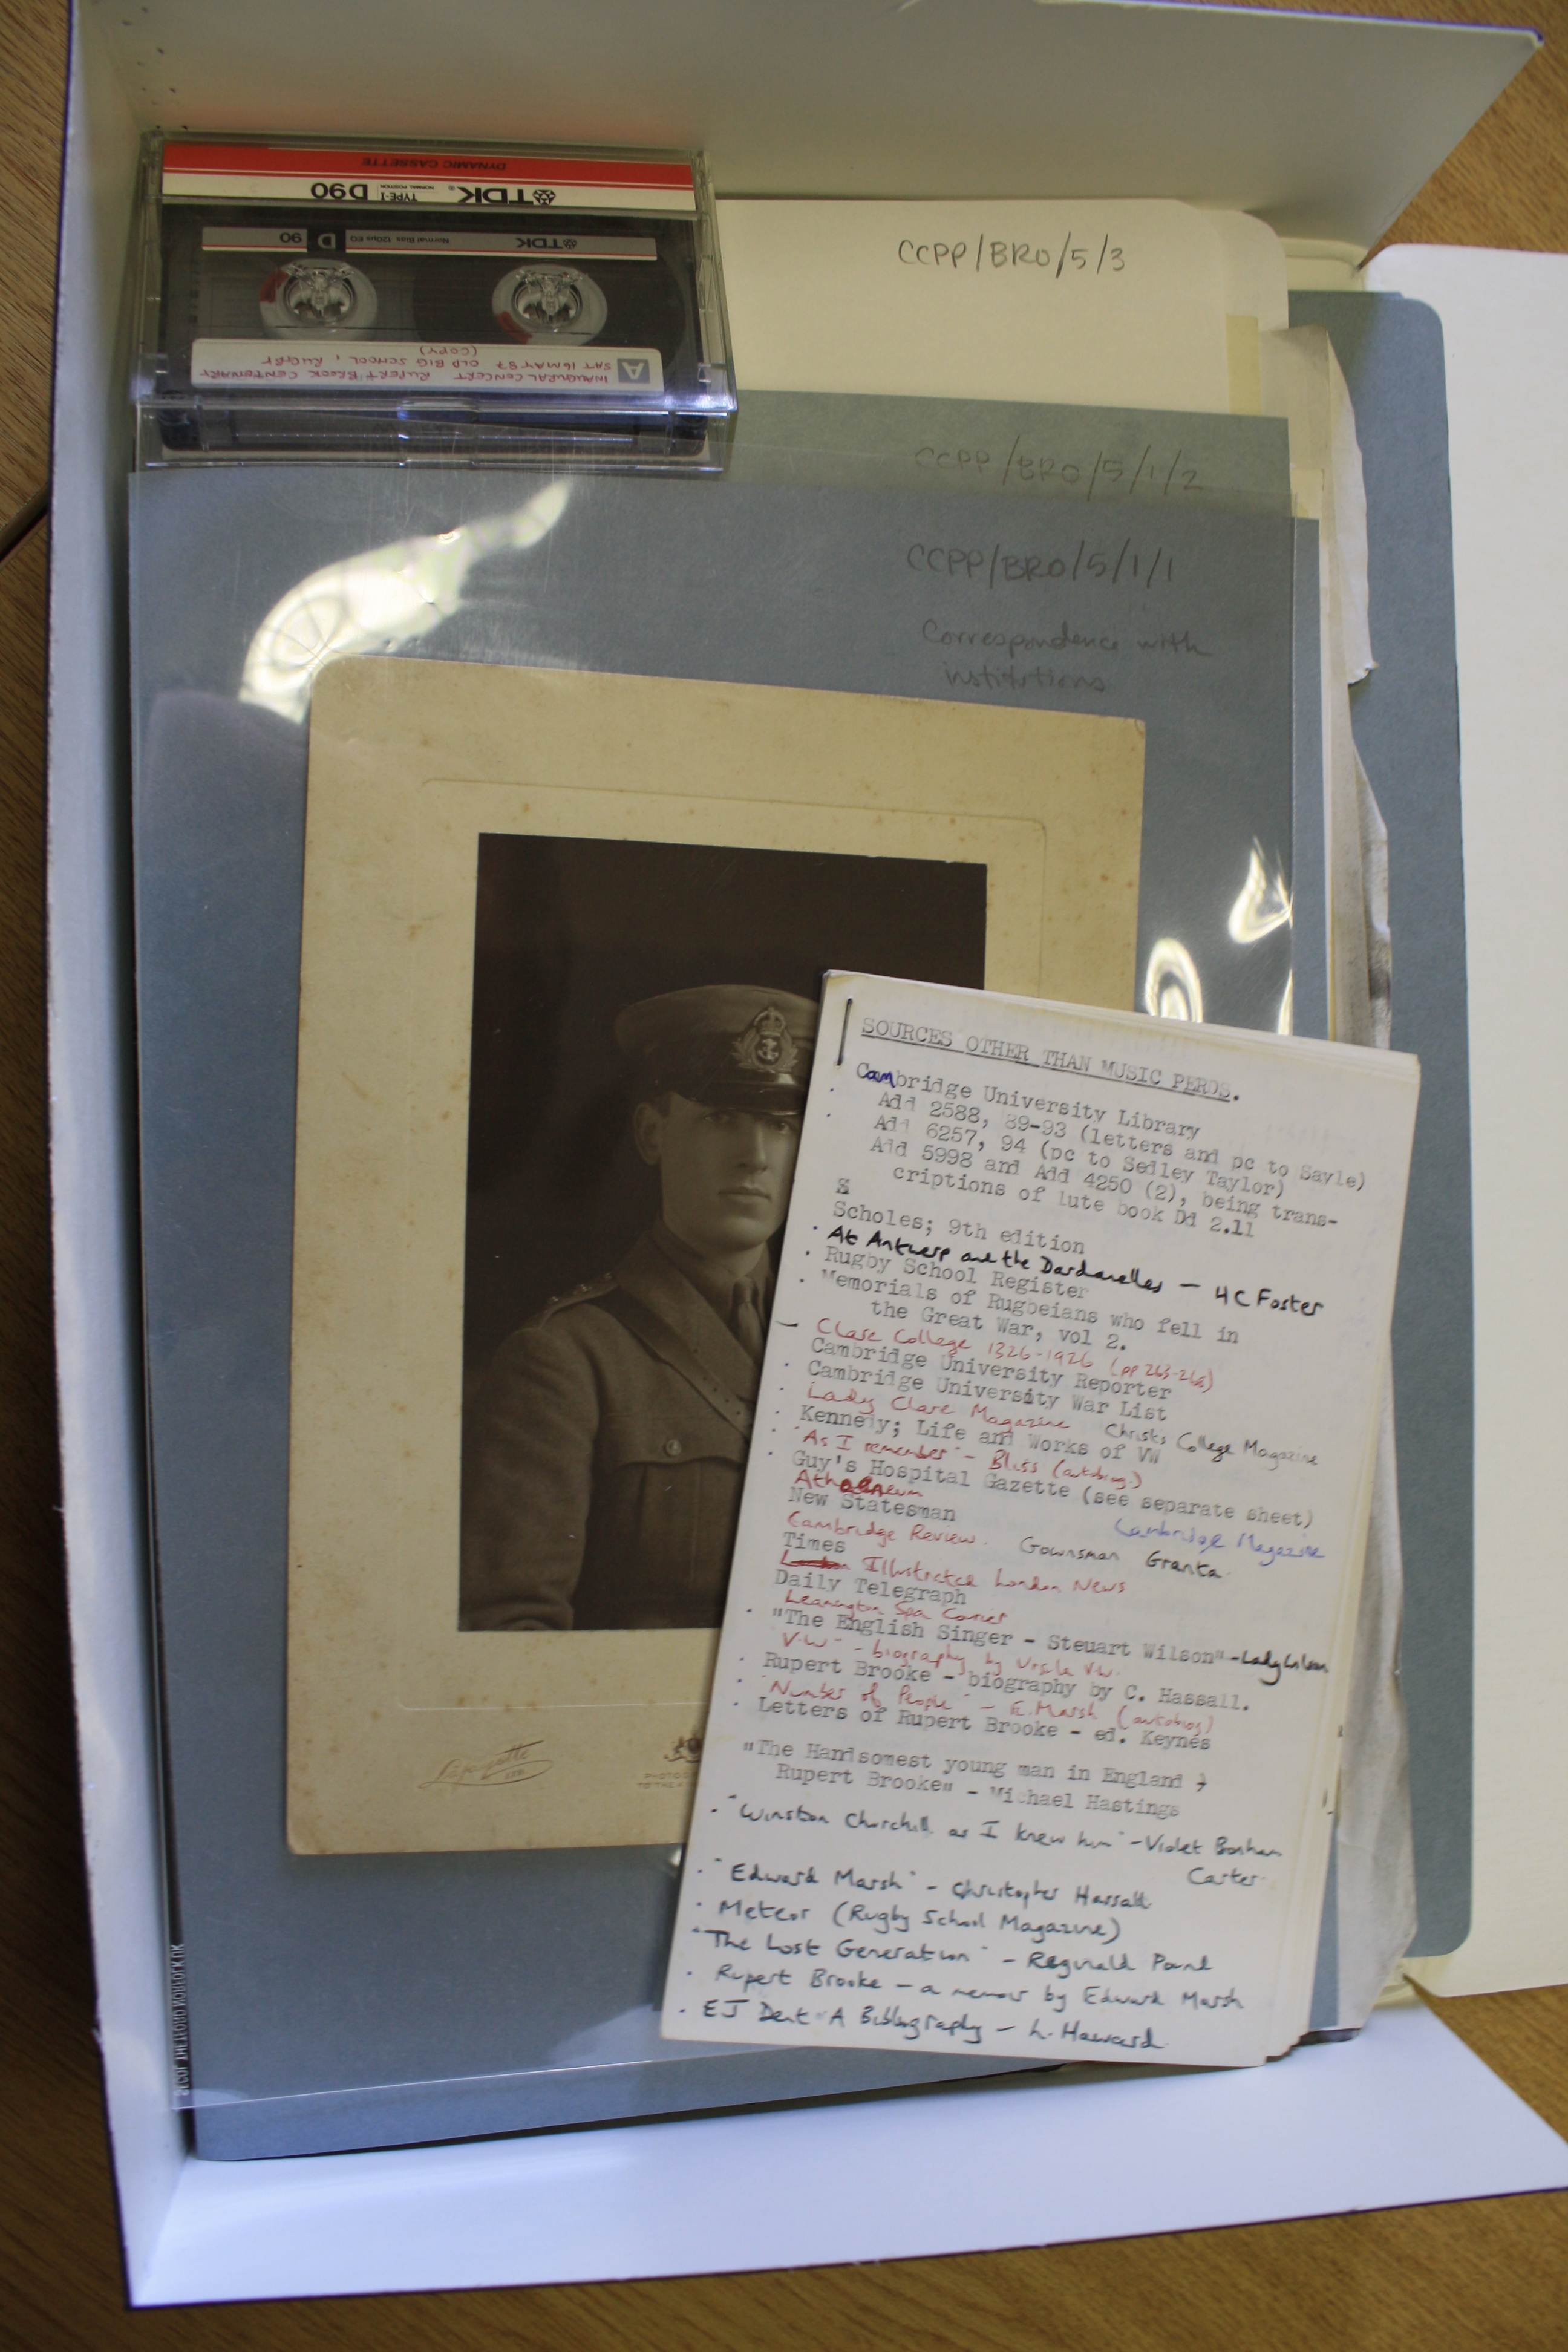 DYNAMIC CASSETTE
TDK® NORMAL POSITION TYPE-I D90
TDK Normal Bias 120µs EQ D 90
A INAUGURAL CONCERT RUPERT BROOK CENTENARY
SAT 16 MAY 87 OLD BIG SCHOOL, RUGBY
(COPY)
CCPP/BRO/5/3
CCPP/BRO/5/1/2
CCPP/BRO/5/1/1
Correspondence with
institutions
Lafayette
SOURCES OTHER THAN MUSIC PERDS.
Cambridge University Library
Add 2588, 89-93 (letters and pc to Sayle)
Add 6257, 94 (pc to Sedley Taylor)
Add 5998 and Add 4250 (2), being trans-
criptions of lute book Dd 2.11
S
Scholes; 9th edition
· At Antwerp and the Dardanelles — H C Foster
· Rugby School Register
· Memorials of Rugbeians who fell in
the Great War, vol 2.
– Clare College 1326-1926 (pp 263-265)
Cambridge University Reporter
· Cambridge University War List
· Lady Clare Magazine Christs College Magazine
· Kennedy; Life and Works of VW
· "As I remember" - Bliss (autobiog.)
· Guy's Hospital Gazette (see separate sheet)
Athenaeum
New Statesman Cambridge Magazine
Cambridge Review. Gownsman Granta
Times
Illustrated London News
Daily Telegraph
Leamington Spa Courier
· "The English Singer - Steuart Wilson" - Lady Wilson
"V-W" - biography by Ursula V.W.
· Rupert Brooke - biography by C. Hassall.
· "Number of People" - E. Marsh (autobiog)
· Letters of Rupert Brooke - ed. Keynes
"The Handsomest young man in England ;
Rupert Brooke" - Michael Hastings
· "Winston Churchill as I knew him" - Violet Bonham
Carter
· "Edward Marsh" - Christopher Hassall
· Meteor (Rugby School Magazine)
"The Lost Generation" - Reginald Pound
· Rupert Brooke - a memoir by Edward Marsh
· EJ Dent A Bibliography - L. Haward